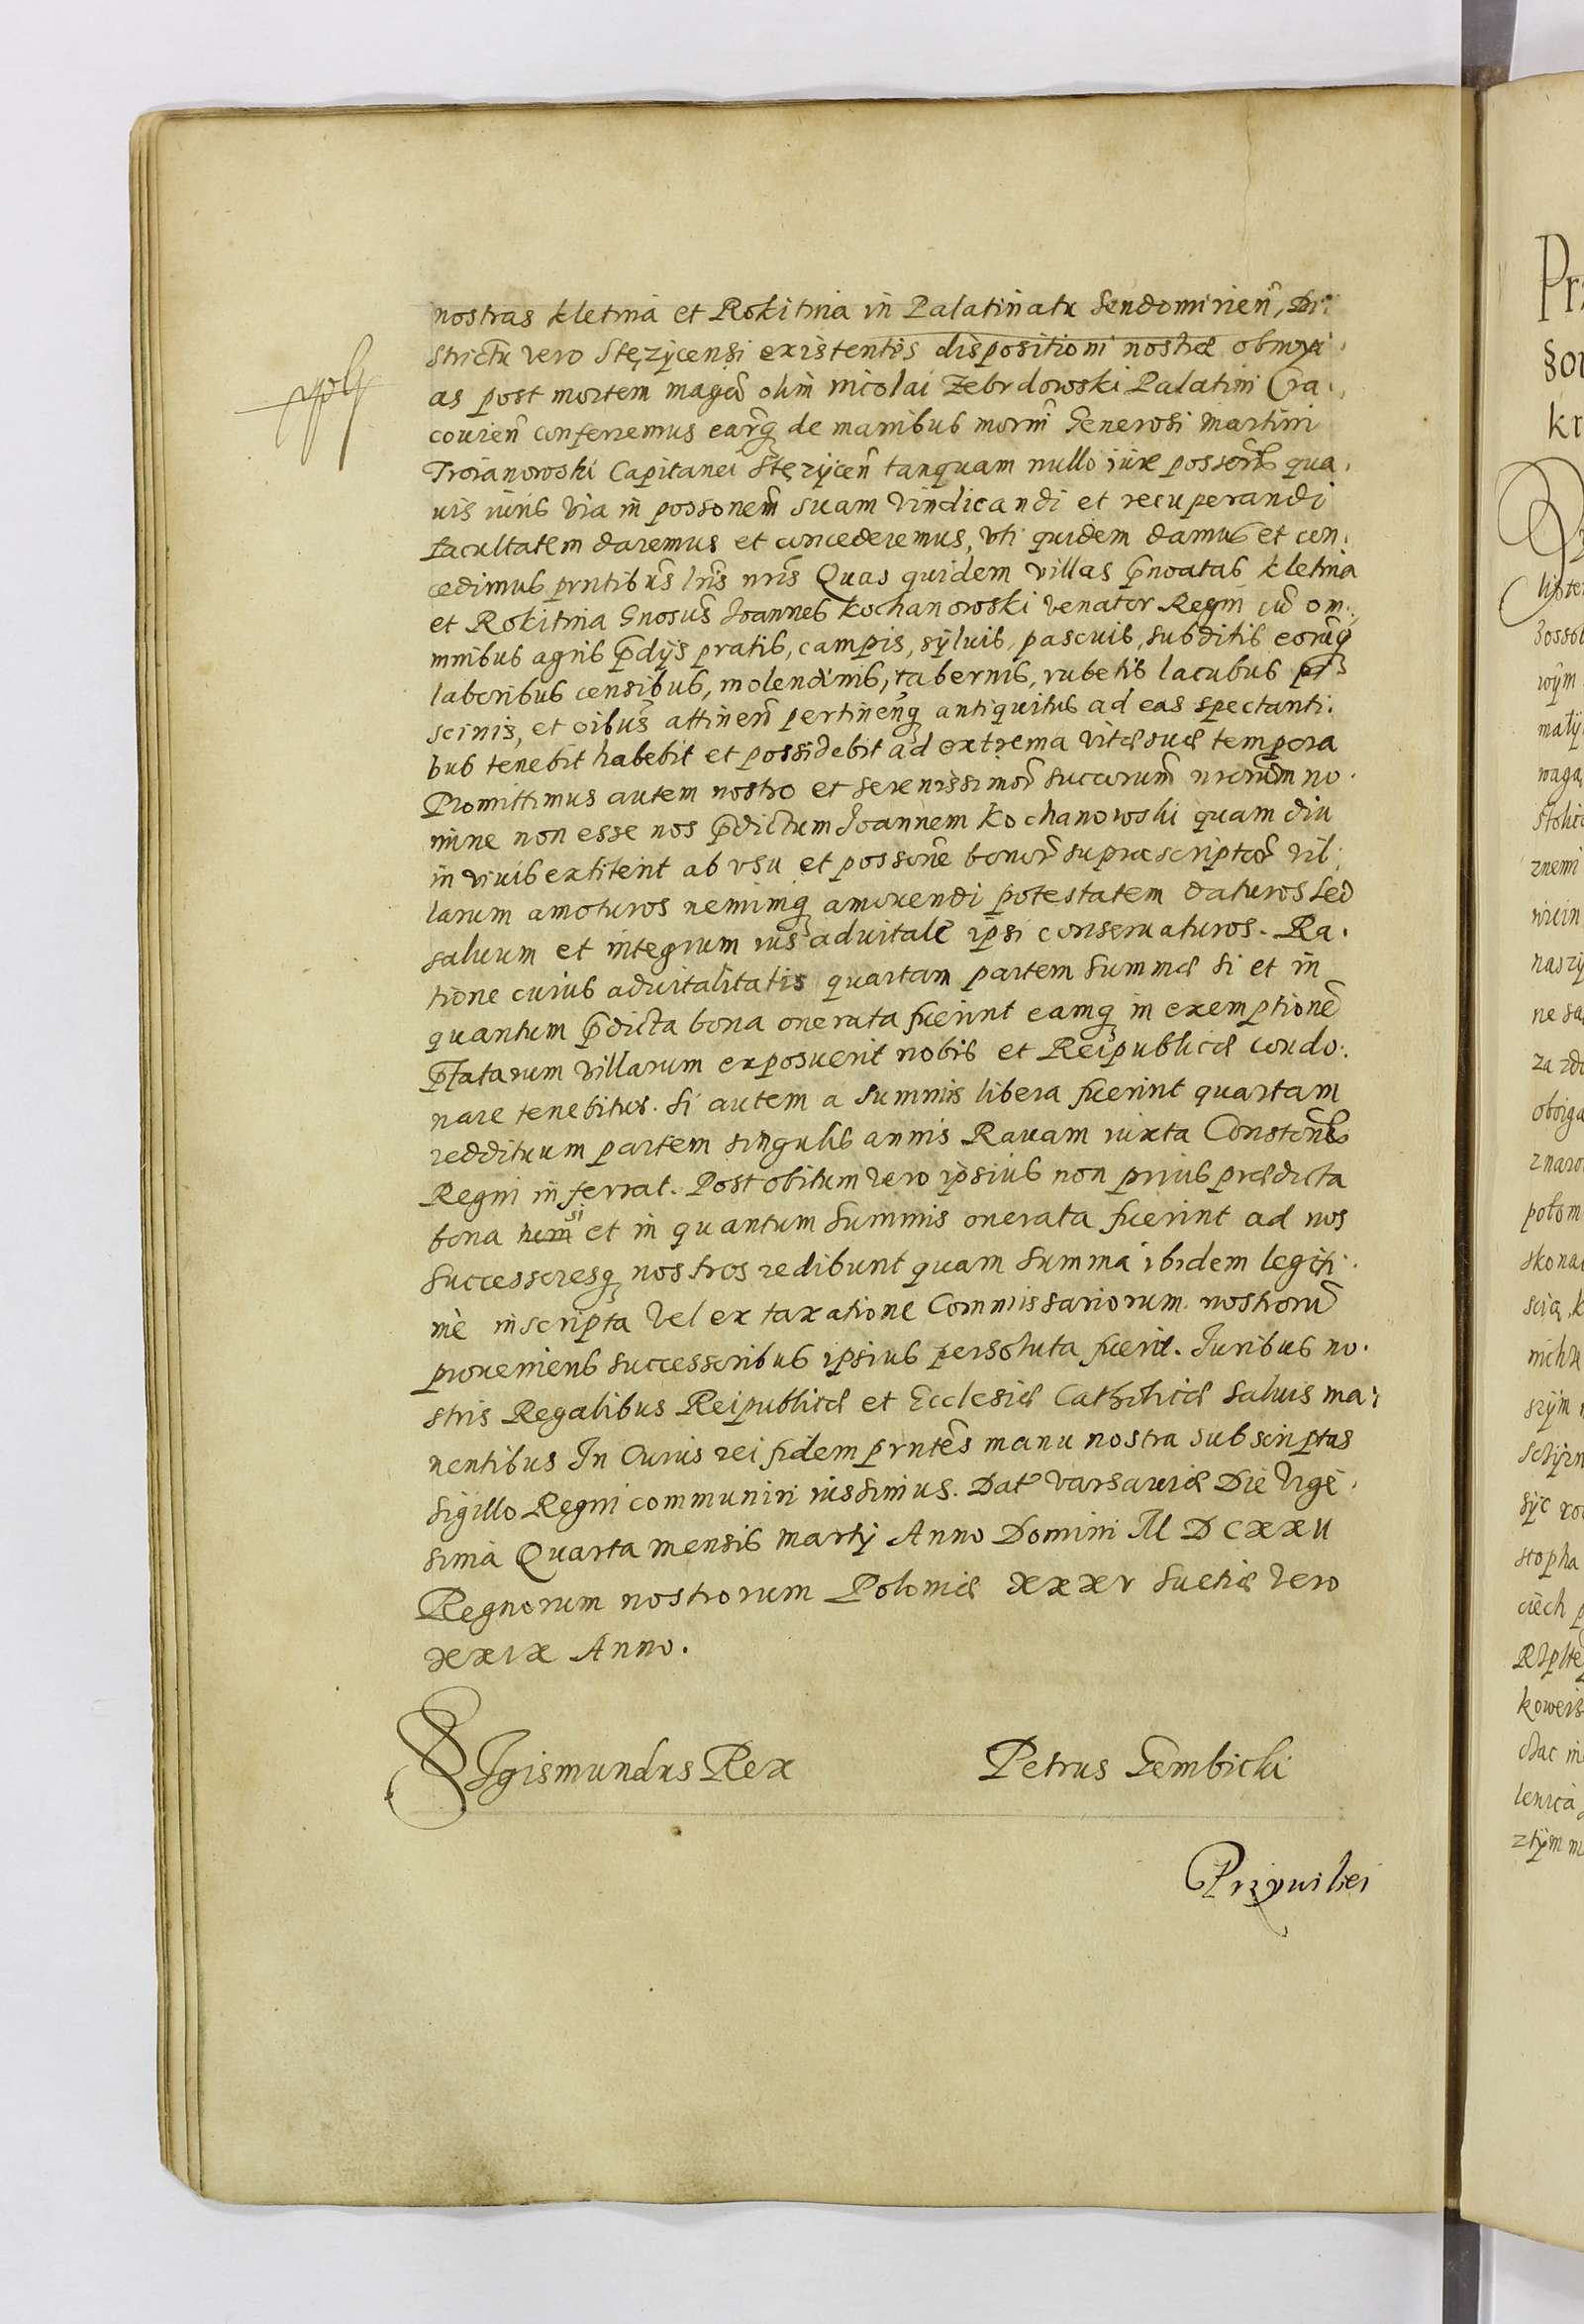 nostras kletnia et Rokitnia in Palatinatu Sendomirien̄, Di:
strictu vero Stęzÿcensi existentes dispositioni nostræ obnoxi:
as post mortem magcī olim Nicolai Zebrdowski Palatini Cra:
couien̄ conferremus earq̨ de manibus morm̄ Generosi Martini
Troianowski Capitanei Stęzÿcen̄ tanquam nullo iure possor̄is qua:
uis iuris via in possonem̄ suam vindicandi et recuperandi
facultatem daremus et concederemus, vti quidem damus et con:
cedimus prntibus̄ lris̄ nris̄ Quas quidem villas p̄noatas kletnia
et Rokitnia Gnosus̄ Joannes Kochanowski venator Regni cū om:
mnibus agris p̄dijs pratis, campis, sÿluis, pascuis, subditis eorūq̨
laboribus censibus, molendinis, tabernis, rubetis lacubus pi
scinis, et oibus̄ attinen̄ pertinen̄q̨ antiquitus ad eas spectanti:
bus tenebit habebit et possidebit ad extrema vitæ suæ tempora
Promittimus autem nostro et serenissimor̄ succorum̄ nrorum̄ no:
mine non esse nos p̄dictum Joannem Kochanowski quam diu
in viuis extiterit ab vsu et possonē bonor̄ supra scriptor̄ vil:
larum amoturos neminiq̨ amouendi potestatem daturos Sed
saluum et integrum ius aduitale ipsi conseruaturos. Ra:
tione cuius aduitalitatis quartam partem Summæ si et in
quantum p̄dicta bona onerata fuerint eamq̨ in exemptione̅
p̄fatarum villarum exposuerit nobis et Reipublicæ condo:
nare tenebitur. Si autem a summis libera fuerint quartam
reddituum partem singulis annis Rauam iuxta Constones̄
Regni inferrat. Post obitum vero ipsius non prius prædicta
bona num si et in quantum Summis onerata fuerint ad nos
Successoresq̨ nostros redibunt quam Summa ibidem legiti:
mè inscripta vel ex taxatione Commissariorum nostrorū
proueniens successoribus ipsius persoluta fuerit. Juribus no:
stris Regalibus Reipublicæ et Ecclesiæ Catholicæ saluis ma:
nentibus In Cuius rei fidem prntes̄ manu nostra subscriptas
Sigillo Regni communiri iussimus. Dat̄ Varsauiæ Die Vige:
sima Quarta mensis Martij Anno Domini M D C XX II
Regnorum nostrorum Poloniæ XXXV Suetiæ vero
XXIX Anno.
Sigismundus Rex Petrus Gembicki
Przÿwilei